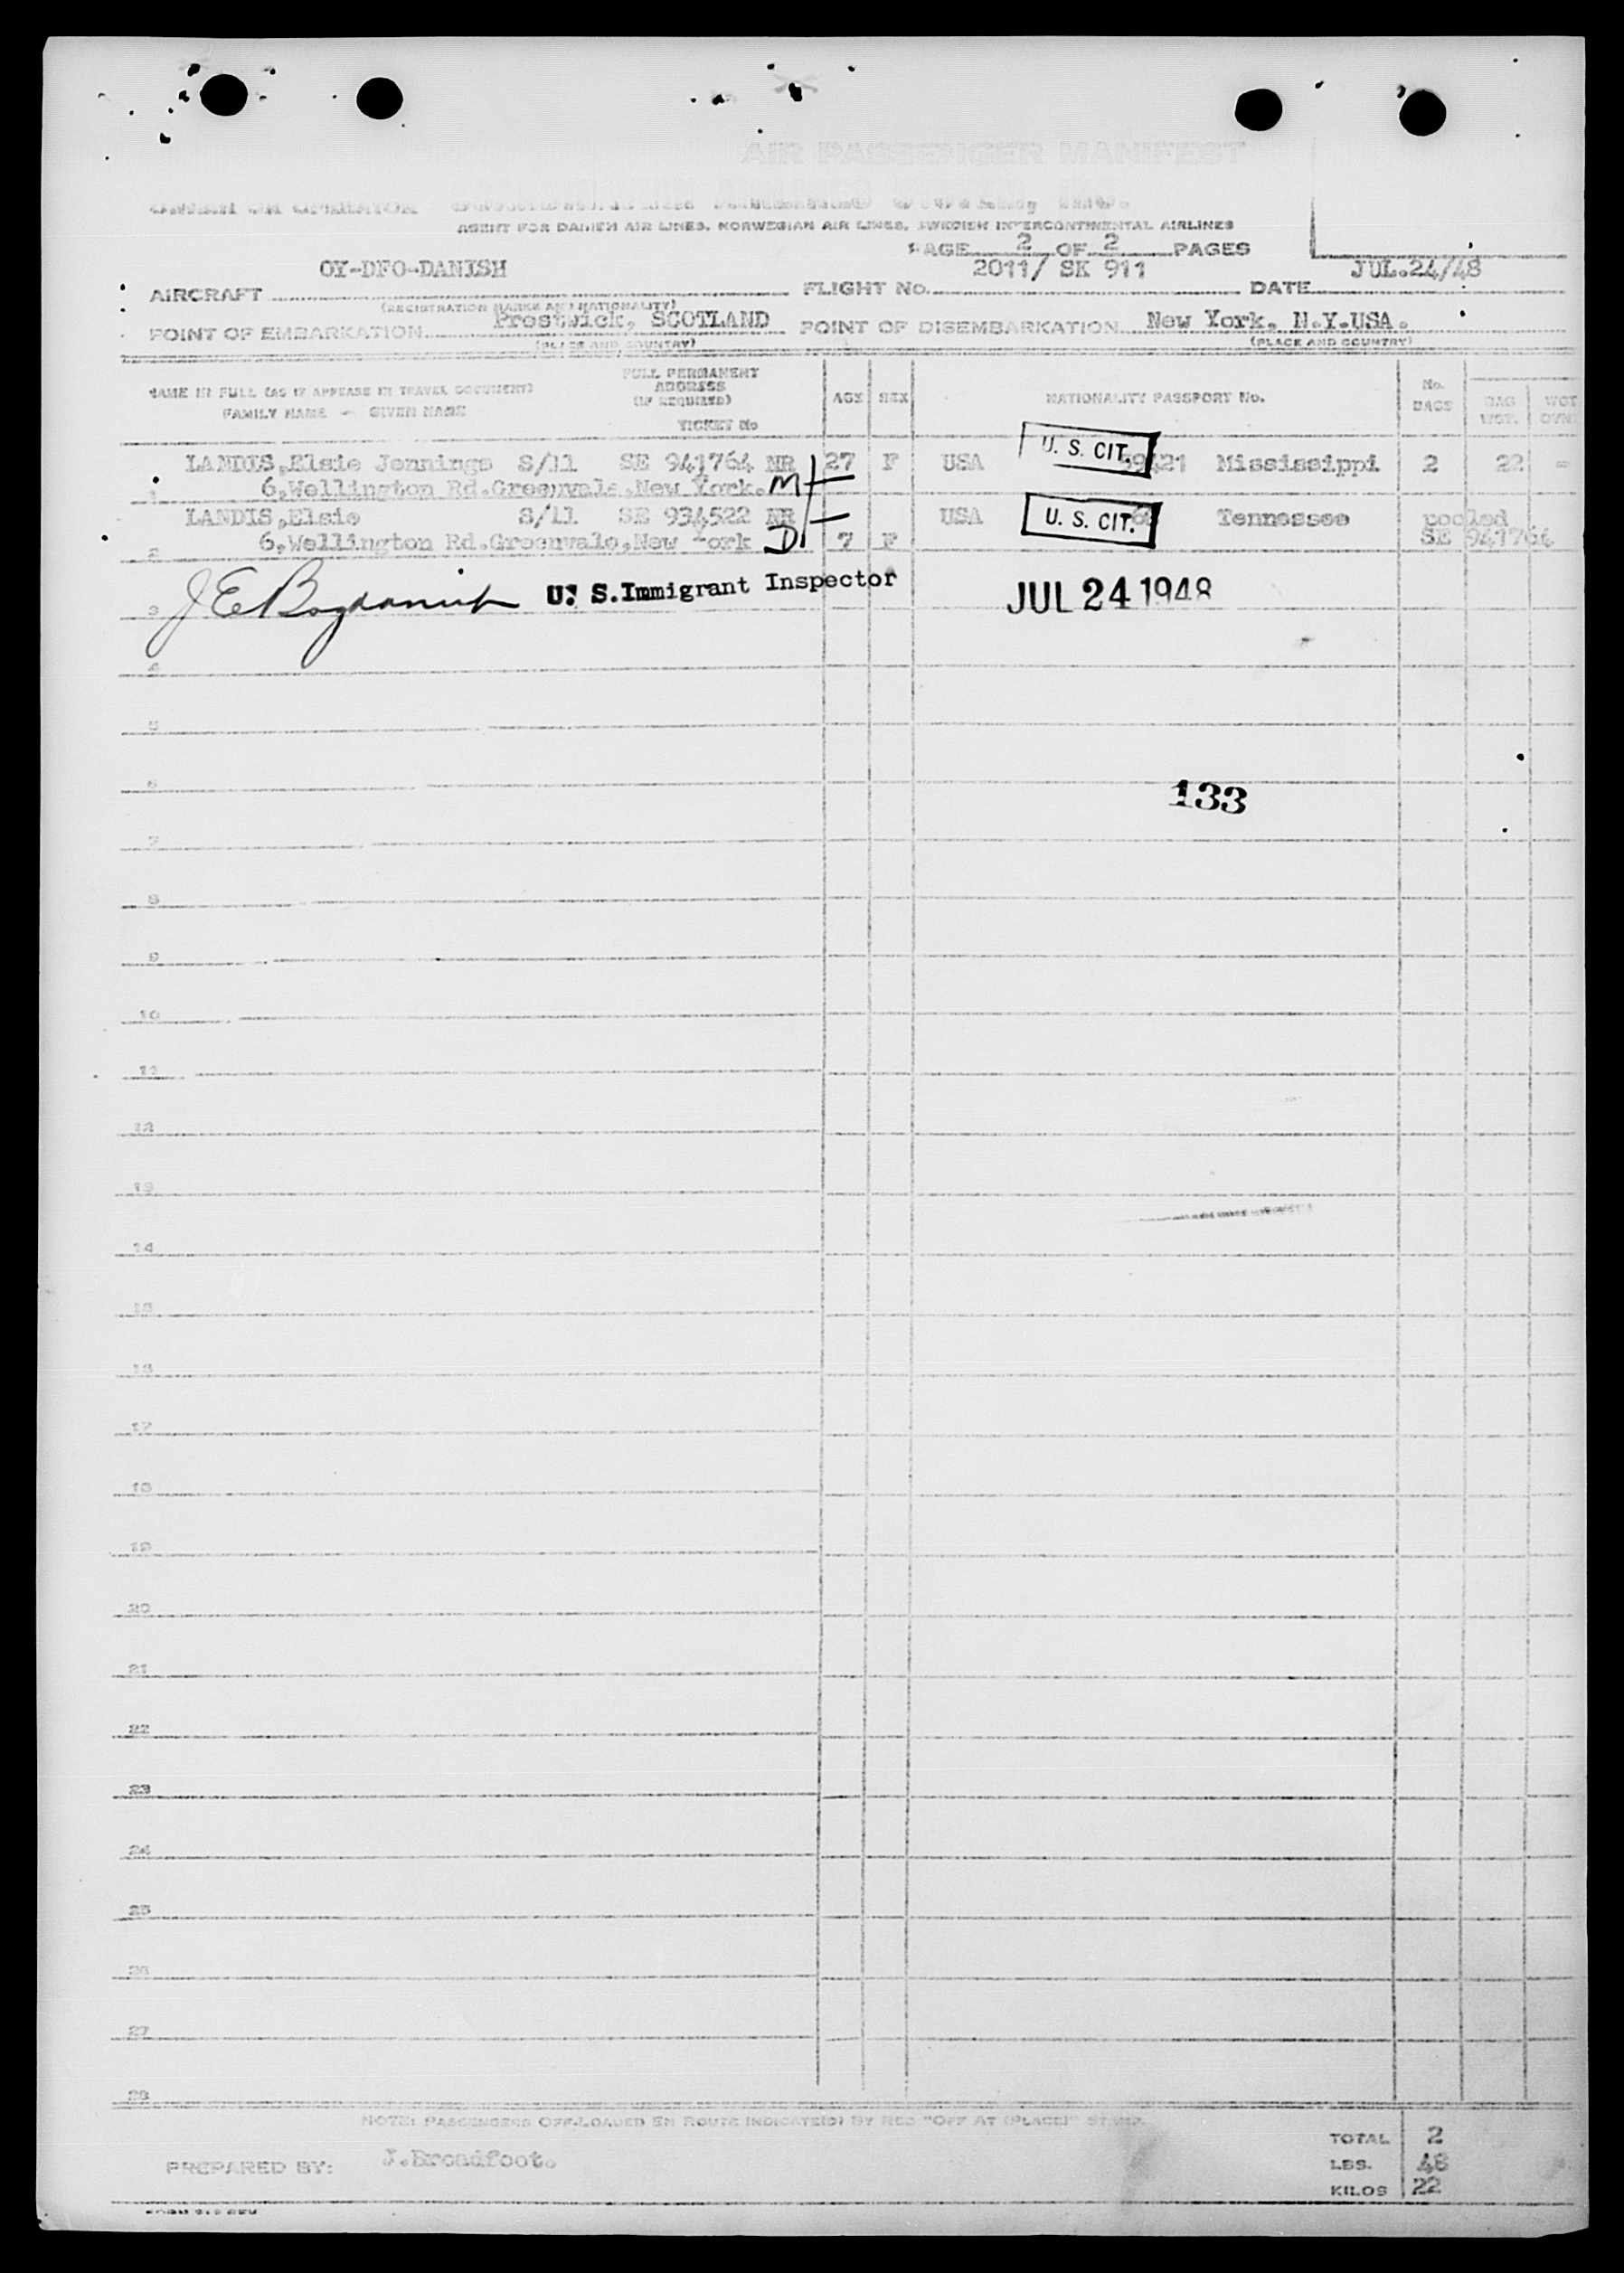 AIR PASSENGER MANIFEST
OWNER OR OPERATOR
AGENT FOR DANISH AIR LINES, NORWEGIAN AIR LINES, SWEDISH INTERCONTINENTAL AIRLINES
PAGE 2 OF 2 PAGES
AIRCRAFT OY-DFO-DANISH FLIGHT No. 2011/ SK 911 DATE JUL.24/48
(REGISTRATION MARKS AND NATIONALITY)
POINT OF EMBARKATION Prestwick, SCOTLAND POINT OF DISEMBARKATION New York, N.Y.USA.
(PLACE AND COUNTRY) (PLACE AND COUNTRY)
NAME IN FULL (AS IT APPEARS IN TRAVEL DOCUMENT) FULL PERMANENT ADDRESS (IF REQUIRED) AGE SEX NATIONALITY PASSPORT No. No. BAGS BAG WGT. WGT
FAMILY NAME - GIVEN NAME TICKET No
LANDIS,Elsie Jennings S/11 SE 941764 NR 27 F USA U. S. CIT. Mississippi 2 22 =
1 6,Wellington Rd.Greenvale,New York. M
LANDIS,Elsie S/11 SE 934522 NR USA U. S. CIT. Tennessee pooled
2 6,Wellington Rd.Greenvale,New York D 7 F SE 941764
3 U. S.Immigrant Inspector JUL 24 1948
4
5
6 133
7
8
9
10
11
12
13
14
15
16
17
18
19
20
21
22
23
24
25
26
27
28
NOTE: PASSENGERS OFF-LOADED EN ROUTE INDICATE(D) BY RED "OFF AT (PLACE)" STAMP
TOTAL 2
PREPARED BY: J.Broadfoot. LBS. 48
KILOS 22